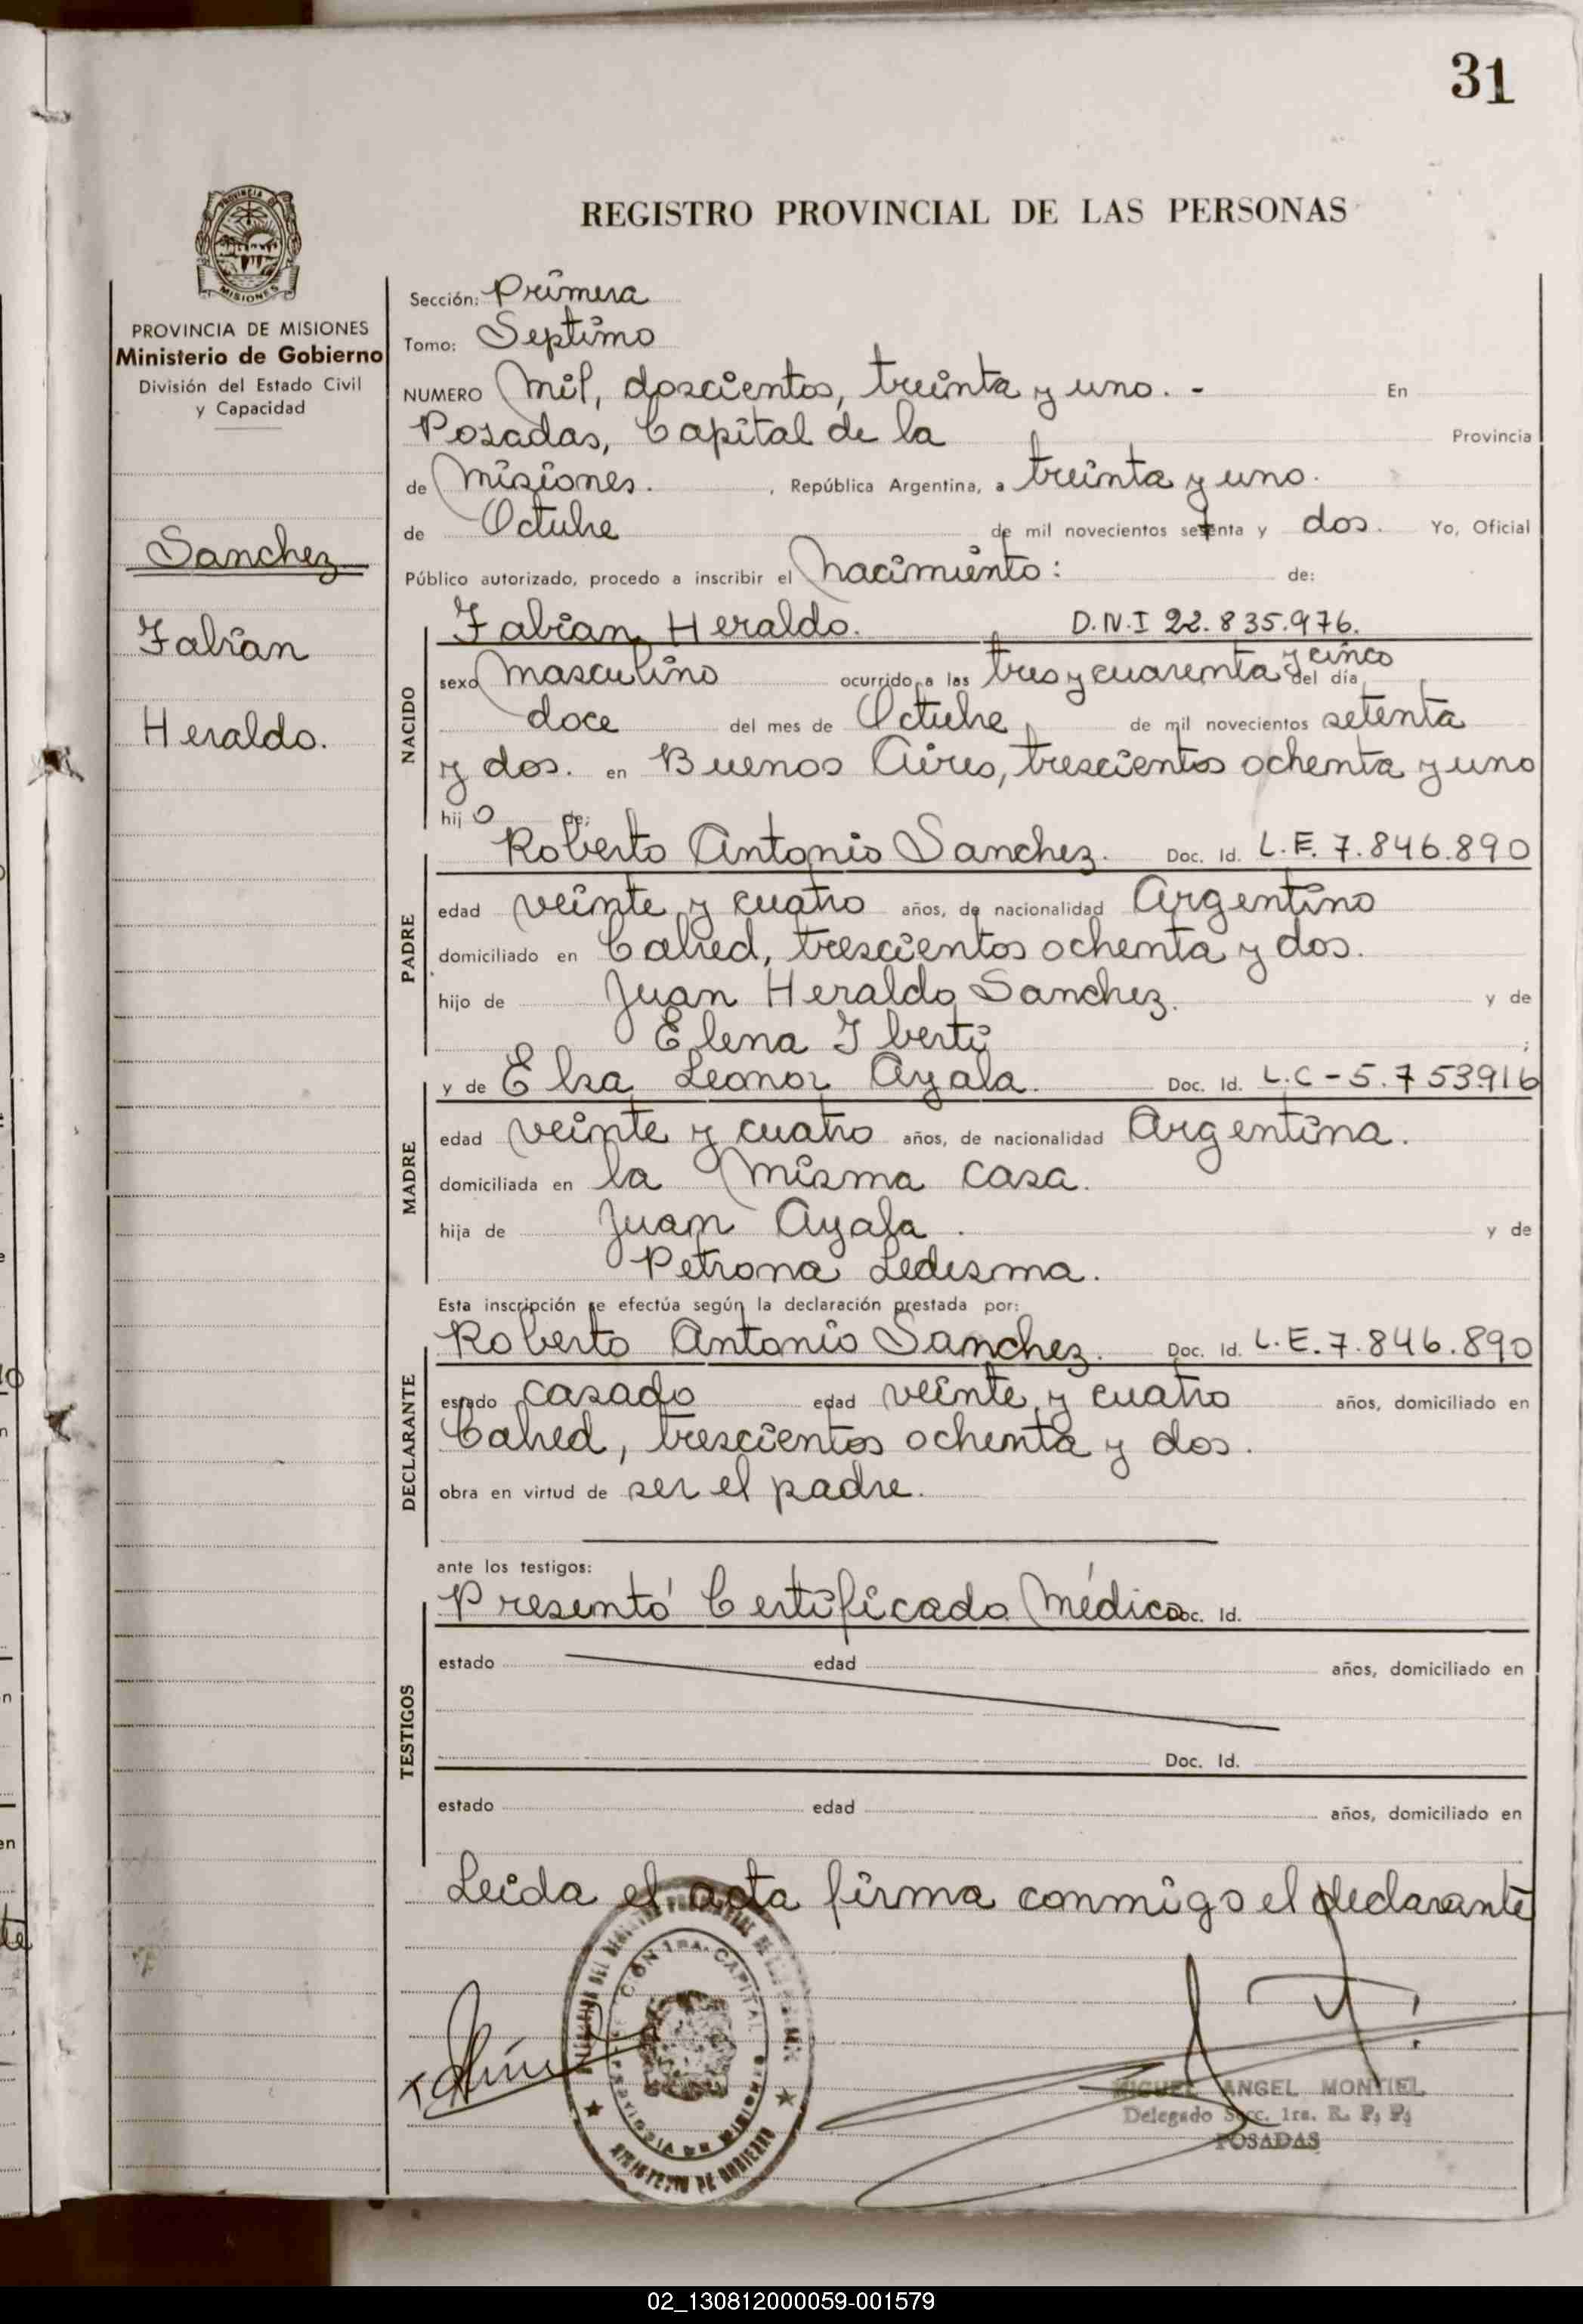 31
REGISTRO PROVINCIAL DE LAS PERSONAS
PROVINCIA DE MISIONES
Ministerio de Gobierno
División del Estado Civil
y Capacidad
Sanchez
Fabian
Heraldo.
Sección: Primera
Tomo: Septimo
NUMERO Mil, doscientos, treinta y uno. - En
Posadas, Capital de la Provincia
de Misiones. , República Argentina, a treinta y uno.
de Octubre de mil novecientos setenta y dos. Yo, Oficial
Público autorizado, procedo a inscribir el nacimiento: de:
NACIDO
Fabian Heraldo. D.N.I 22.835.976.
sexo masculino ocurrido a las tres y cuarenta y cinco del día
doce del mes de Octubre de mil novecientos setenta
y dos. en Buenos Aires, trescientos ochenta y uno
hijo de:
PADRE
Roberto Antonio Sanchez. Doc. Id. L.E. 7.846.890
edad veinte y cuatro años, de nacionalidad Argentino
domiciliado en Cabred, trescientos ochenta y dos.
hijo de Juan Heraldo Sanchez. y de
Elena Iberti ;
MADRE
y de Elsa Leonor Ayala. Doc. Id. L.C-5.753916
edad veinte y cuatro años, de nacionalidad Argentina.
domiciliada en la misma casa.
hija de Juan Ayala. y de
Petrona Ledesma.
Esta inscripción se efectúa según la declaración prestada por:
DECLARANTE
Roberto Antonio Sanchez. Doc. Id. L.E. 7.846.890
estado casado edad veinte y cuatro años, domiciliado en
Cabred, trescientos ochenta y dos.
obra en virtud de ser el padre.
ante los testigos:
TESTIGOS
Presentó Certificado Médico Doc. Id.
estado edad años, domiciliado en
Doc. Id.
estado edad años, domiciliado en
Leida el acta firma conmigo el declarante
MIGUEL ANGEL MONTIEL
Delegado Secc. 1ra. R. P. P.
POSADAS
02_130812000059-001579